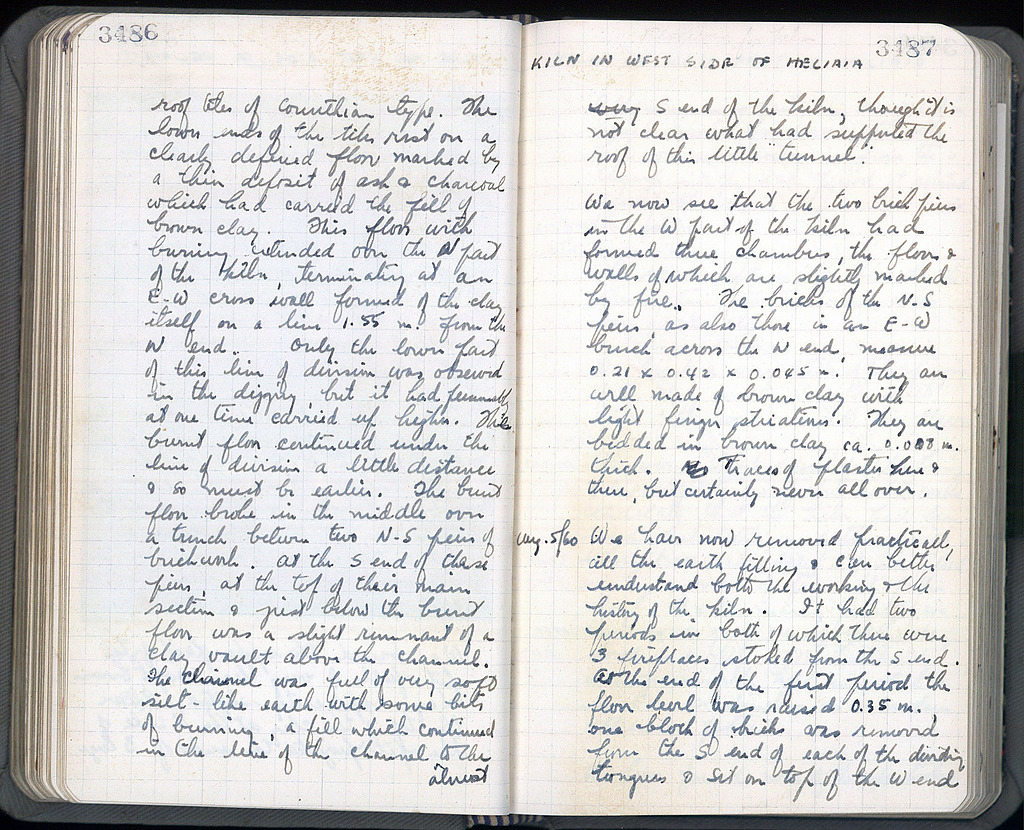 3486
roof tiles of Corinthian type. The
lower ends of the tiles rest on a
clearly defined floor marked by
a thin deposit of ash & charcoal
which had carried the fill of
brown clay. This floor with
burning extended over the N part
of the kiln, terminating at an
E-W cross wall formed of the clay
itself on a line 1.55 m. from the
N end. Only the lower part
of this line of division was observed
in the digging, but it had presumably
at one time carried up higher. The
burnt floor continued under the
line of division a little distance
& so must be earlier. The burnt
floor broke in the middle over
a trench between two N-S piers of
brickwork. At the S end of these
piers, at the top of their main
section & just below the burnt
floor was a slight remnant of a
clay vault above the channel.
The channel was full of very soft
silt-like earth with some bits
of burning, a fill which continued
in the line of the channel to the
almost
3487
KILN IN WEST SIDE OF HELIAIA
very S end of the kiln, though it is
not clear what had supported the
roof of this little "tunnel".
We now see that the two brick piers
in the N part of the kiln had
formed three chambers, the floors &
walls of which are slightly marked
by fire. The bricks of the N-S
piers, as also those in an E-W
bench across the N end, measure
0.21 x 0.42 x 0.045 m. They are
well made of brown clay with
light finger striations. They are
bedded in brown clay ca. 0.008 m.
thick. Traces of plaster here &
there, but certainly never all over.
Aug. 5/60 We have now removed practically
all the earth filling & can better
understand both the working & the
history of the kiln. It had two
periods in both of which there were
3 fireplaces stoked from the S end.
At the end of the first period the
floor level was raised 0.35 m.,
one block of bricks was removed
from the S end of each of the dividing
tongues & set on top of the N end